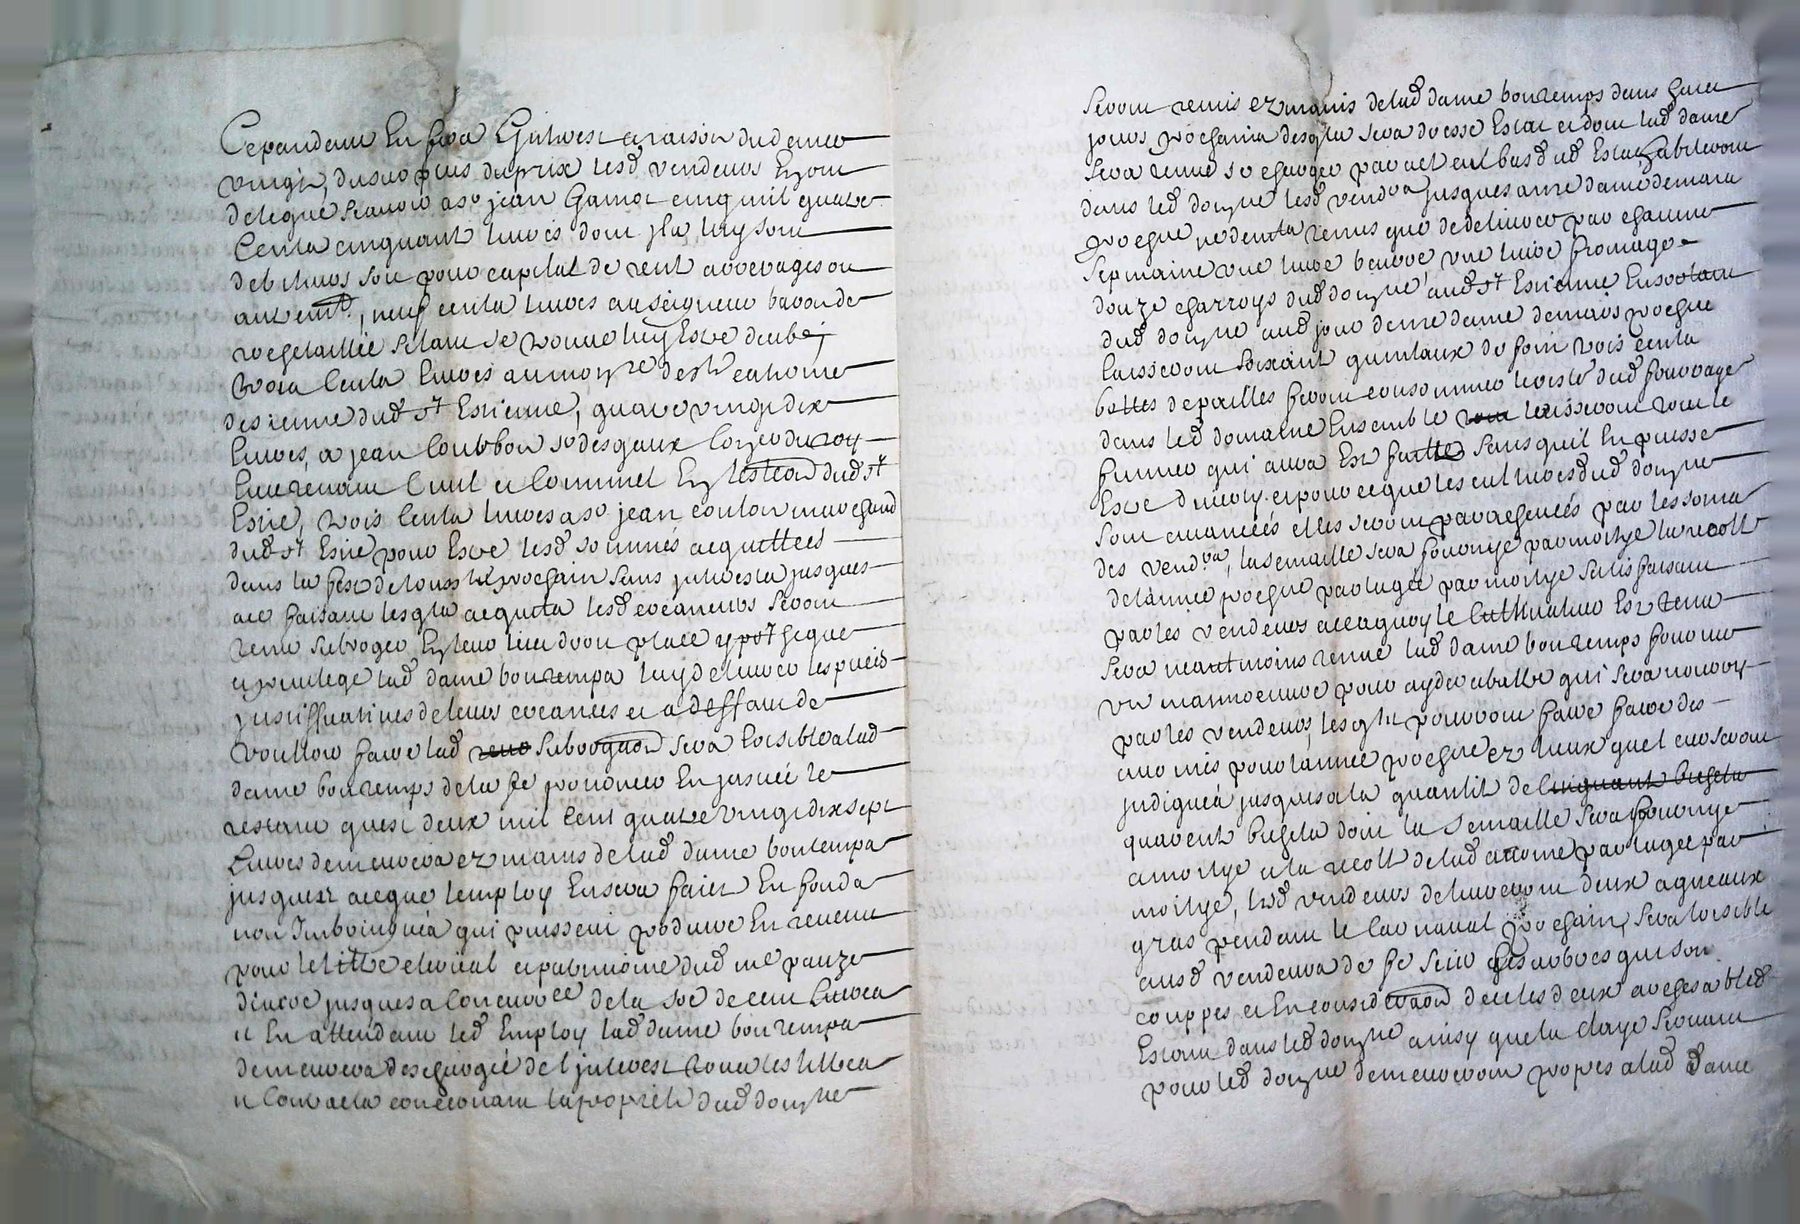 Cependant En fera Ginterest a raison du denier
vingt, du surplus du prix lesd vendeurs En ont
delegué scavoir a sr jean Gamot cinq mil quatre
Cents cinquant livres dont jls luy sont
debiteurs soit pour capital de rent arrerages ou
autremt, neuf cents livres au seigneur baron de
rochetaillée
trois Cents livres au
de sienne dud st Estienne, quatre vingt dix
livres, a jean Courbon sr desgaux Con.er du roy
Lieutenant Civil et Criminel En lelection dud st
Estie, trois Cents livres a sr jean coulon marchand
dud st Estie pour Estre lesd sommes acquittees
dans la feste de touss.ts prochain sans jnterests jusques
ace faisant lesqls acquits lesd creanciers seront
tenu subroger En leur lieu droit place ypotheque
et privilege lad dame bontemps luy delivrer les pieces
justifficatives de leurs creances et a deffaut de
voulloir faire lad subrogaon sera loisible a lad
dame bontemps de la se
restant quest deux mil Cent quatre vingt dix sept
Livres demeurera ez mains de lad dame bontemps
jusques acque lemploy En sera faict En fonds
non qui puissent produire En revenu
pour le tiltre clerical et patrimoine dud me pauze
diacre jusques a Concurrce de la soe de cent Livres
et En attendant led Employ lad dame bontemps
demeurera deschargée de l jnterest tous les tiltres
et Contracts concernant la proprieté dud domyne
seront remis ez mains de lad dame bontemps dans huict
jours prochains desqls sera dressé Estat et dont lad dame
sera tenue se charger par act au bas dud Estat, habiteront
dans led domyne lesd vendrs jusques a nre dame de mars
proche ne dentts tenus que de delivrer par chacune
sepmaine une livre beurre une livre fromage et
douze charroys dud domyne aud st Estienne En sortant
dud domyne aud jour de nre dame de mars proche
laisseront soixant quintaux de foin trois Cents
bottes de pailles feront consommer le reste dud fourrage
dans led domaine Ensemble laisseront tout le
fumier qui aura Esté faitte sans quil En puisse
Estre diverty et pour ceque les cultures dud domyne
sont avancées elles seront parachevées par les soins
des vendrs, la semaille sera fournye par moitye la recolt
de lannée proche partagée par moitye satisfaisant
par les vendeurs aceaquoy le Cultivateur Est tenu
sera neantmoins tenue lad dame bontemps fournir
un manoeuvre pour ayder abattre qui sera nourry
par les vendeurs, lesqls pourront faire faire des
pour lannée proche ez lieux quel leur seront
jndiqués jusques a la quantité de cinquant bichets
quarent bichets dont la semaille sera fournye
a moitye et la recolt de lad partagée par
moitye, lesd vendeurs delivreront deux agneaux
gras pendant le Carnaval prochain, sera loisible
ausd vendeurs de se servir des arbres qui sont
couppes et En consideraon de ce les deux arches a bled
Estant dans led domyne ainsy que la claye servant
pour led domyne demeureront propres a lad dame